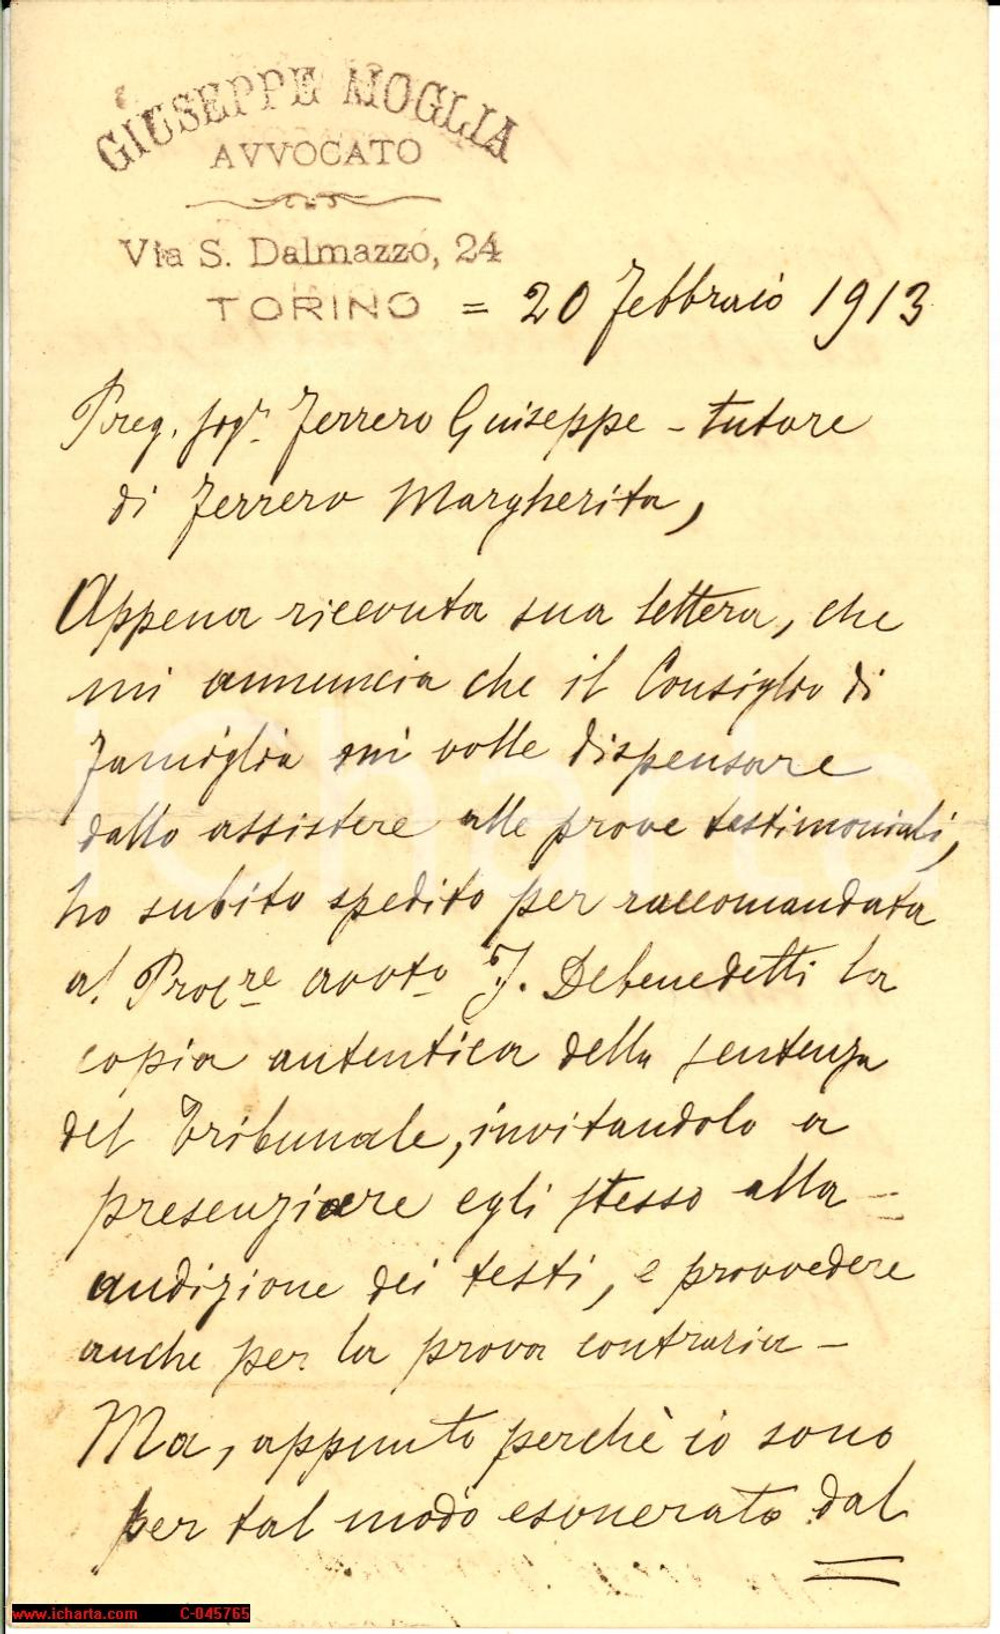 GIUSEPPE MOGLIA
AVVOCATO
Via S. Dalmazzo, 24
TORINO = 20 Febbraio 1913
Preg. Sigr. Ferrero Giuseppe - tutore
di Ferrero Margherita,
Appena ricevuta sua lettera, che
mi annuncia che il Consiglio di
famiglia mi volle dispensare
dallo assistere alle prove testimoniali,
ho subito spedito per raccomandata
al Procre avvto J. Debenedetti la
copia autentica della sentenza
del Tribunale, invitandolo a
presenziare egli stesso alla -
audizione dei testi, e provvedere
anche per la prova contraria -
Ma, appunto perchè io sono
per tal modo esonerato dal
www.icharta.com C-045765